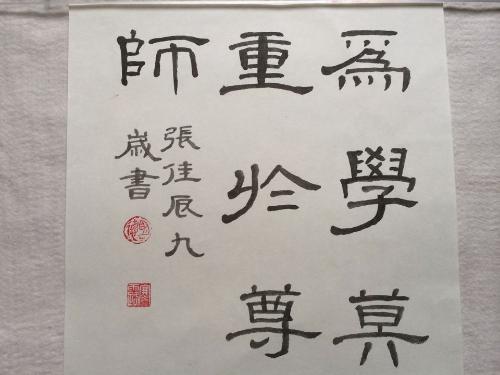 為學莫
重於尊
師
張佳辰九
歲書